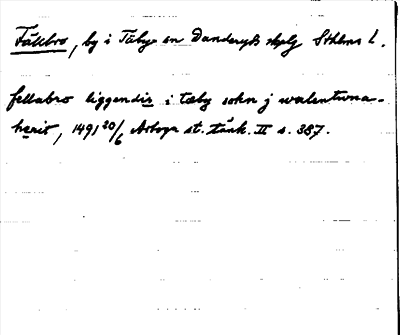 Fällbro, by i Täby sn Danderyds skplg Sthlms L.
fellabro liggendis i tæby sokn j walentwna-
hærit, 1491 20/6 Arboga st. tänk. II s. 387.